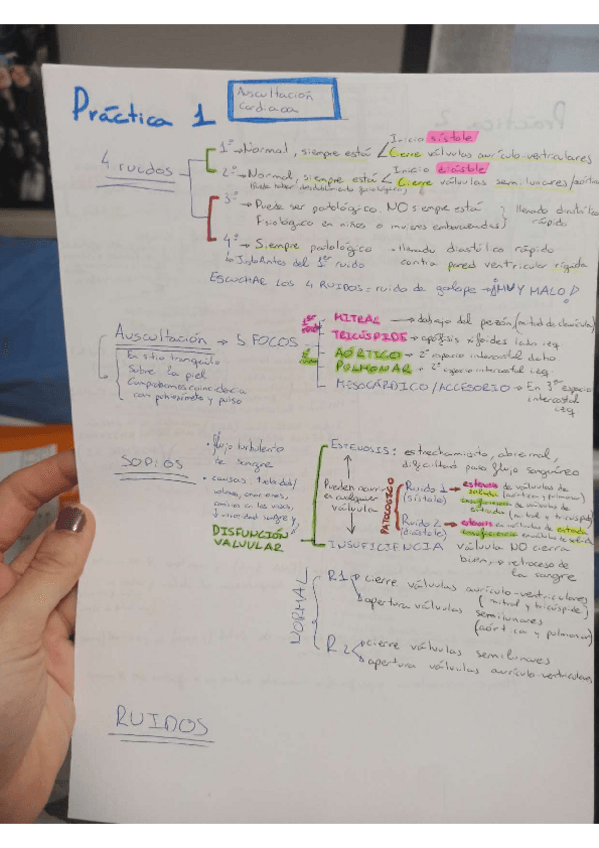 Práctica 1
Auscultación
Cardiaca
4 ruidos
1º → Normal, siempre está
Inicio sístole
Cierre válvulas aurículo-ventriculares
2º → Normal, siempre está
Inicio diástole
Cierre válvulas semilunares/
(Puede haber desdoblamiento fisiológico)
3º → Puede ser patológico. NO siempre está
Fisiológico en niños o mujeres embarazadas
llenado diastólico
rápido
4º → Siempre patológico
llenado diastólico rápido
contra pared ventricular rígida
del 1er ruido
ESCUCHAR LOS 4 RUIDOS = ruido de galope → ¡MUY MALO!
Auscultación → 5 FOCOS
En sitio tranquilo
Sobre la piel
con pulsioxímetro y pulso
1er ruido
MITRAL → debajo del pezón (mitad de clavícula)
TRICÚSPIDE → apófisis xifoides lado izq
2º ruido
AÓRTICO → 2º espacio intercostal dcho
PULMONAR → 2º espacio intercostal izq
MESOCÁRDICO/ACCESORIO → En 3er espacio
intercostal
izq
SOPLOS
• flujo turbulento
de sangre
• causas:
DISFUNCIÓN
VALVULAR
ESTENOSIS: estrechamiento,
dificultad para flujo sanguíneo
Pueden ocurrir
en cualquier
válvula
PATOLÓGICO
Ruido 1 → estenosis de válvulas de
(sístole) salida (aórtica y pulmonar)
insuficiencia de válvulas de
entrada (mitral y tricúspide)
Ruido 2 → estenosis en válvulas de entrada
(diástole) insuficiencia en válvulas de salida
INSUFICIENCIA válvula NO cierra
bien → retroceso de
la sangre
NORMAL
R1 → cierre válvulas aurículo-ventriculares
(mitral y tricúspide)
→ apertura válvulas semilunares
(aórtica y pulmonar)
R2 → cierre válvulas semilunares
→ apertura válvulas aurículo-ventriculares
RUIDOS